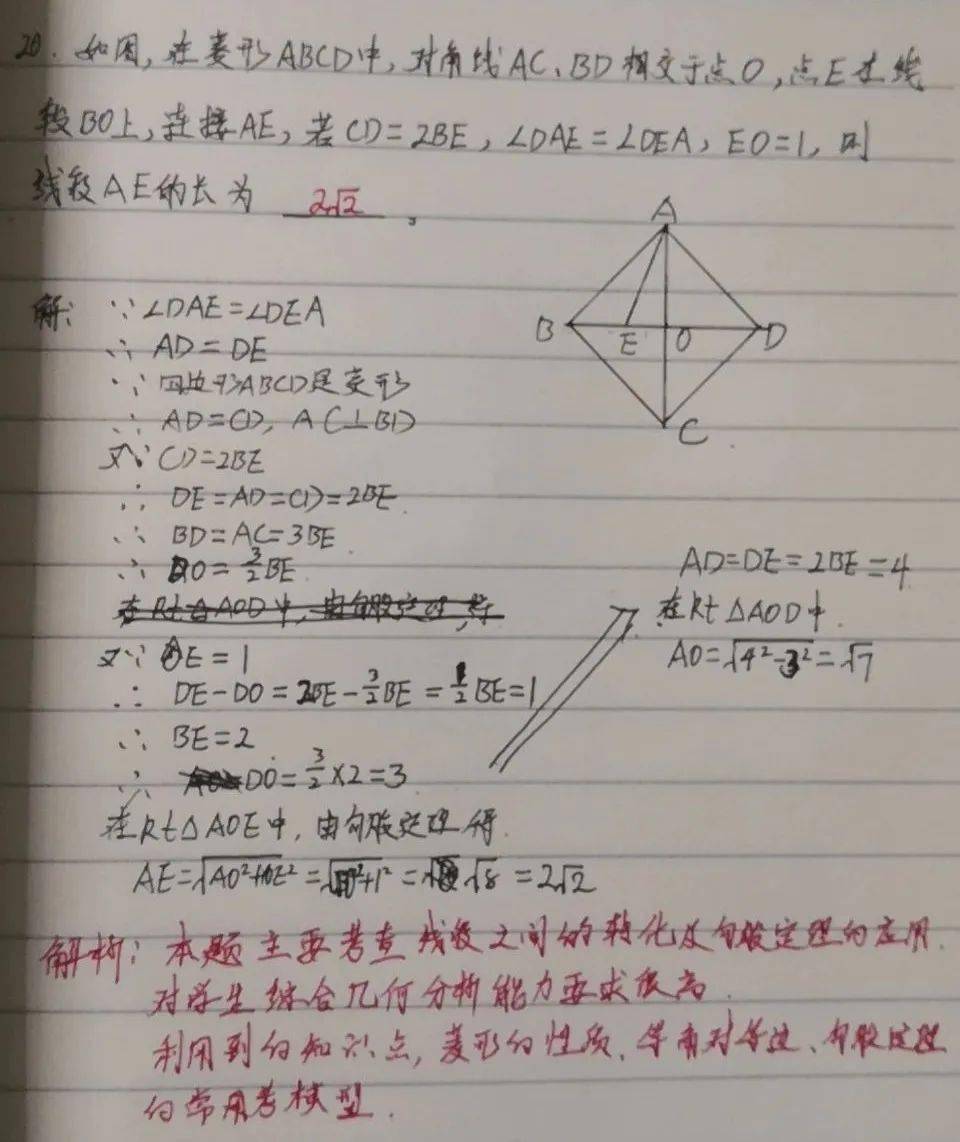 20. 如图,在菱形ABCD中,对角线AC、BD相交于点O,点E在线
段BO上,连接AE,若CD=2BE,∠DAE=∠DEA,EO=1,则
线段AE的长为 2√2 。
A
B E O D
C
解: ∵∠DAE=∠DEA
∴ AD=DE
∵ 四边形ABCD是菱形
∴ AD=CD, AC⊥BD
又∵ CD=2BE
∴ DE=AD=CD=2BE
∴ BD=AC=3BE
∴ DO=3/2BE
在Rt△AOD中,由勾股定理,得
又∵ OE=1
∴ DE-DO=2BE-3/2BE=1/2BE=1
∴ BE=2
∴ DO=3/2×2=3
AD=DE=2BE=4
在Rt△AOD中
AO=√4²-3²=√7
在Rt△AOE中,由勾股定理得.
AE=√AO²+OE²=√ ²+1²=√8=2√2
解析:本题主要考查线段之间的转化及勾股定理的应用.
对学生综合几何分析能力要求很高.
利用到的知识点,菱形的性质、等角对等边、勾股定理
的常用考模型.